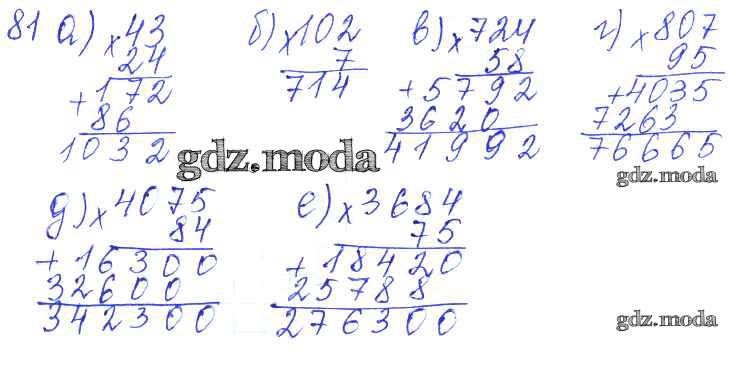 81 а) × 43 б) × 102 в) × 724 г) × 807
24 7 58 95
+ 172 714 + 5792 + 4035
86 3620 7263
1032 41992 76665
gdz.moda
gdz.moda
д) × 4075 е) × 3684
84 75
+ 16300 + 18420
32600 25788
342300 276300
gdz.moda